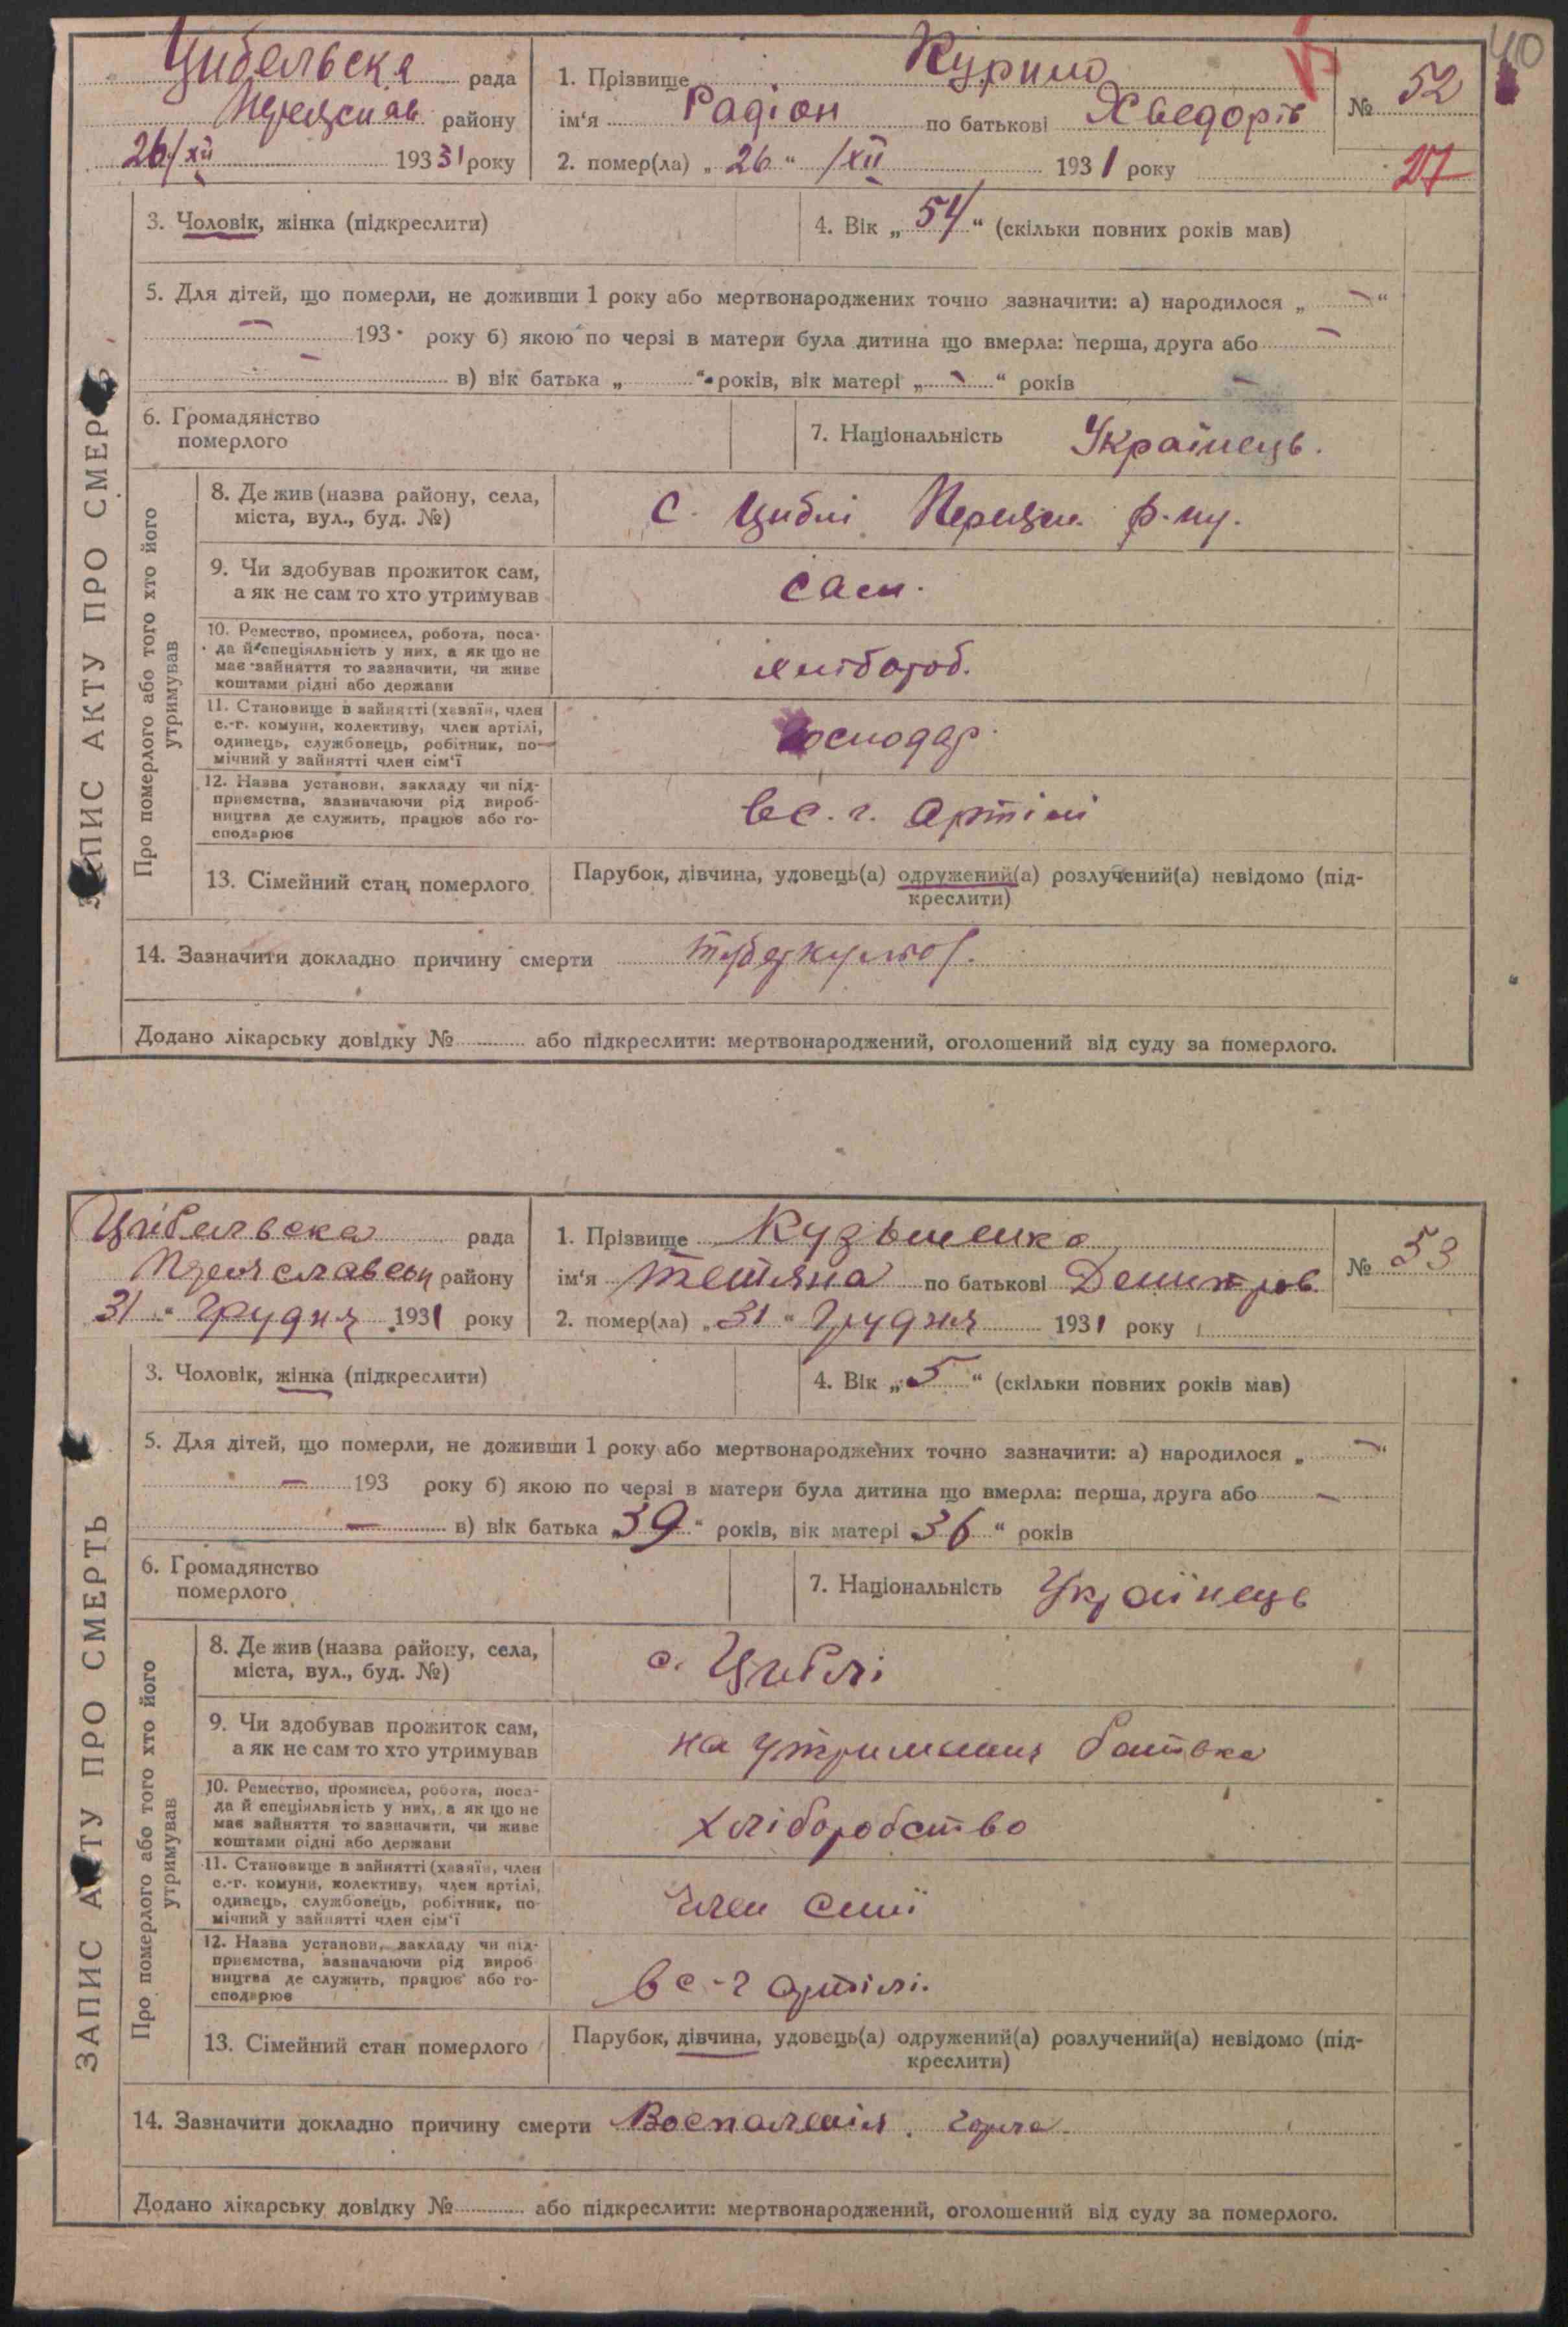 40
Цибельска рада
Переяслав району
26/XII 1931 року
1. Прізвище Курило
ім'я Радіон по батькові Хведорів
№ 52
2. помер(ла) „ 26 “ /XII 1931 року
27
3. Чоловік, жінка (підкреслити)
4. Вік „ 54 “ (скільки повних років мав)
5. Для дітей, що померли, не доживши 1 року або мертвонароджених точно зазначити: а) народилося „ — “
— 193 року б) якою по черзі в матери була дитина що вмерла: перша, друга або —
— в) вік батька „ “ років, вік матері „ — “ років
6. Громадянство
померлого
7. Національність Українець.
ЗАПИС АКТУ ПРО СМЕРТЬ
Про померлого або того хто його
утримував
8. Де жив (назва району, села,
міста, вул., буд. №)
с. Циблі Переясл. р-ну.
9. Чи здобував прожиток сам,
а як не сам то хто утримував
сам.
10. Ремество, промисел, робота, поса-
да й спеціяльність у них, а як що не
має зайняття то зазначити, чи живе
коштами рідні або держави
хлібороб.
11. Становище в зайнятті (хазяїн, член
с.-г. комуни, колективу, член артілі,
одинець, службовець, робітник, по-
мічний у зайнятті член сім'ї
Господар
12. Назва установи, закладу чи під-
приємства, зазначаючи рід вироб-
ництва де служить, працює або го-
сподарює
в с. г. артілі
13. Сімейний стан померлого
Парубок, дівчина, удовець(а) одружений(а) розлучений(а) невідомо (під-
креслити)
14. Зазначити докладно причину смерти туберкульоз.
Додано лікарську довідку № або підкреслити: мертвонароджений, оголошений від суду за померлого.
Цибельска рада
Переяславськ району
31 “ Грудня 1931 року
1. Прізвище Кузьменко
ім'я Тетяна по батькові Демитров.
№ 53
2. помер(ла) „ 31 “ Грудня 1931 року
3. Чоловік, жінка (підкреслити)
4. Вік „ 5 “ (скільки повних років мав)
5. Для дітей, що померли, не доживши 1 року або мертвонароджених точно зазначити: а) народилося „ — “
— 193 року б) якою по черзі в матери була дитина що вмерла: перша, друга або —
— в) вік батька „ 39 “ років, вік матері 36 “ років
6. Громадянство
померлого
7. Національність Українець
ЗАПИС АКТУ ПРО СМЕРТЬ
Про померлого або того хто його
утримував
8. Де жив (назва району, села,
міста, вул., буд. №)
с. Циблі
9. Чи здобував прожиток сам,
а як не сам то хто утримував
на утримания батька
10. Ремество, промисел, робота, поса-
да й спеціяльність у них, а як що не
має зайняття то зазначити, чи живе
коштами рідні або держави
хліборобство
11. Становище в зайнятті (хазяїн, член
с.-г. комуни, колективу, член артілі,
одинець, службовець, робітник, по-
мічний у зайнятті член сім'ї
член симї
12. Назва установи, закладу чи під-
приємства, зазначаючи рід вироб
ництва де служить, працює або го-
сподарює
в с-г артілі.
13. Сімейний стан померлого
Парубок, дівчина, удовець(а) одружений(а) розлучений(а) невідомо (під-
креслити)
14. Зазначити докладно причину смерти Воспаленія горла
Додано лікарську довідку № або підкреслити: мертвонароджений, оголошений від суду за померлого.